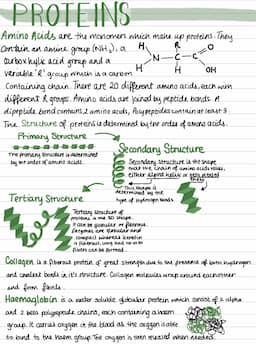 PROTEINS
Amino Acids are the monomers which make up proteins. They
contain an amine group (NH2), a
carboxylic acid group and a
variable 'R' group which is a carbon
H
N
H
R
C
H
C
O
OH
containing chain. There are 20 different amino acids, each with
different R groups. Amino acids are joined by peptide bonds. A
dipeptide bond contains 2 amino acids, Polypeptides contain at least 3.
The Structure of proteins is determined by the order of amino acids.
Primary Structure
The primary structure is determined
by the order of amino acids.
Secondary Structure
Secondary Structure is the shape
that the chain of amino acids takes,
either alpha helix or beta pleated
This shape is
determined by the
type of hydrogen bonds
Tertiary Structure
Tertiary Structure of
proteins is the 3D shape.
It can be globular or fibrous.
Enzymes are globular and
compact whereas keratin
is fibrous, long and
can be formed.
Collagen is a fibrous protein of great strength due to the presence of both hydrogen
and covalent bonds in it's structure. Collagen molecules wrap around eachother
and form
Haemoglobin is a water soluble globular protein which consists of 2 alpha
and 2 beta polypeptide chains, each containing a haem
group. It carries oxygen in the blood as the oxygen is able
to bind to the haem group. The oxygen is then released when needed.